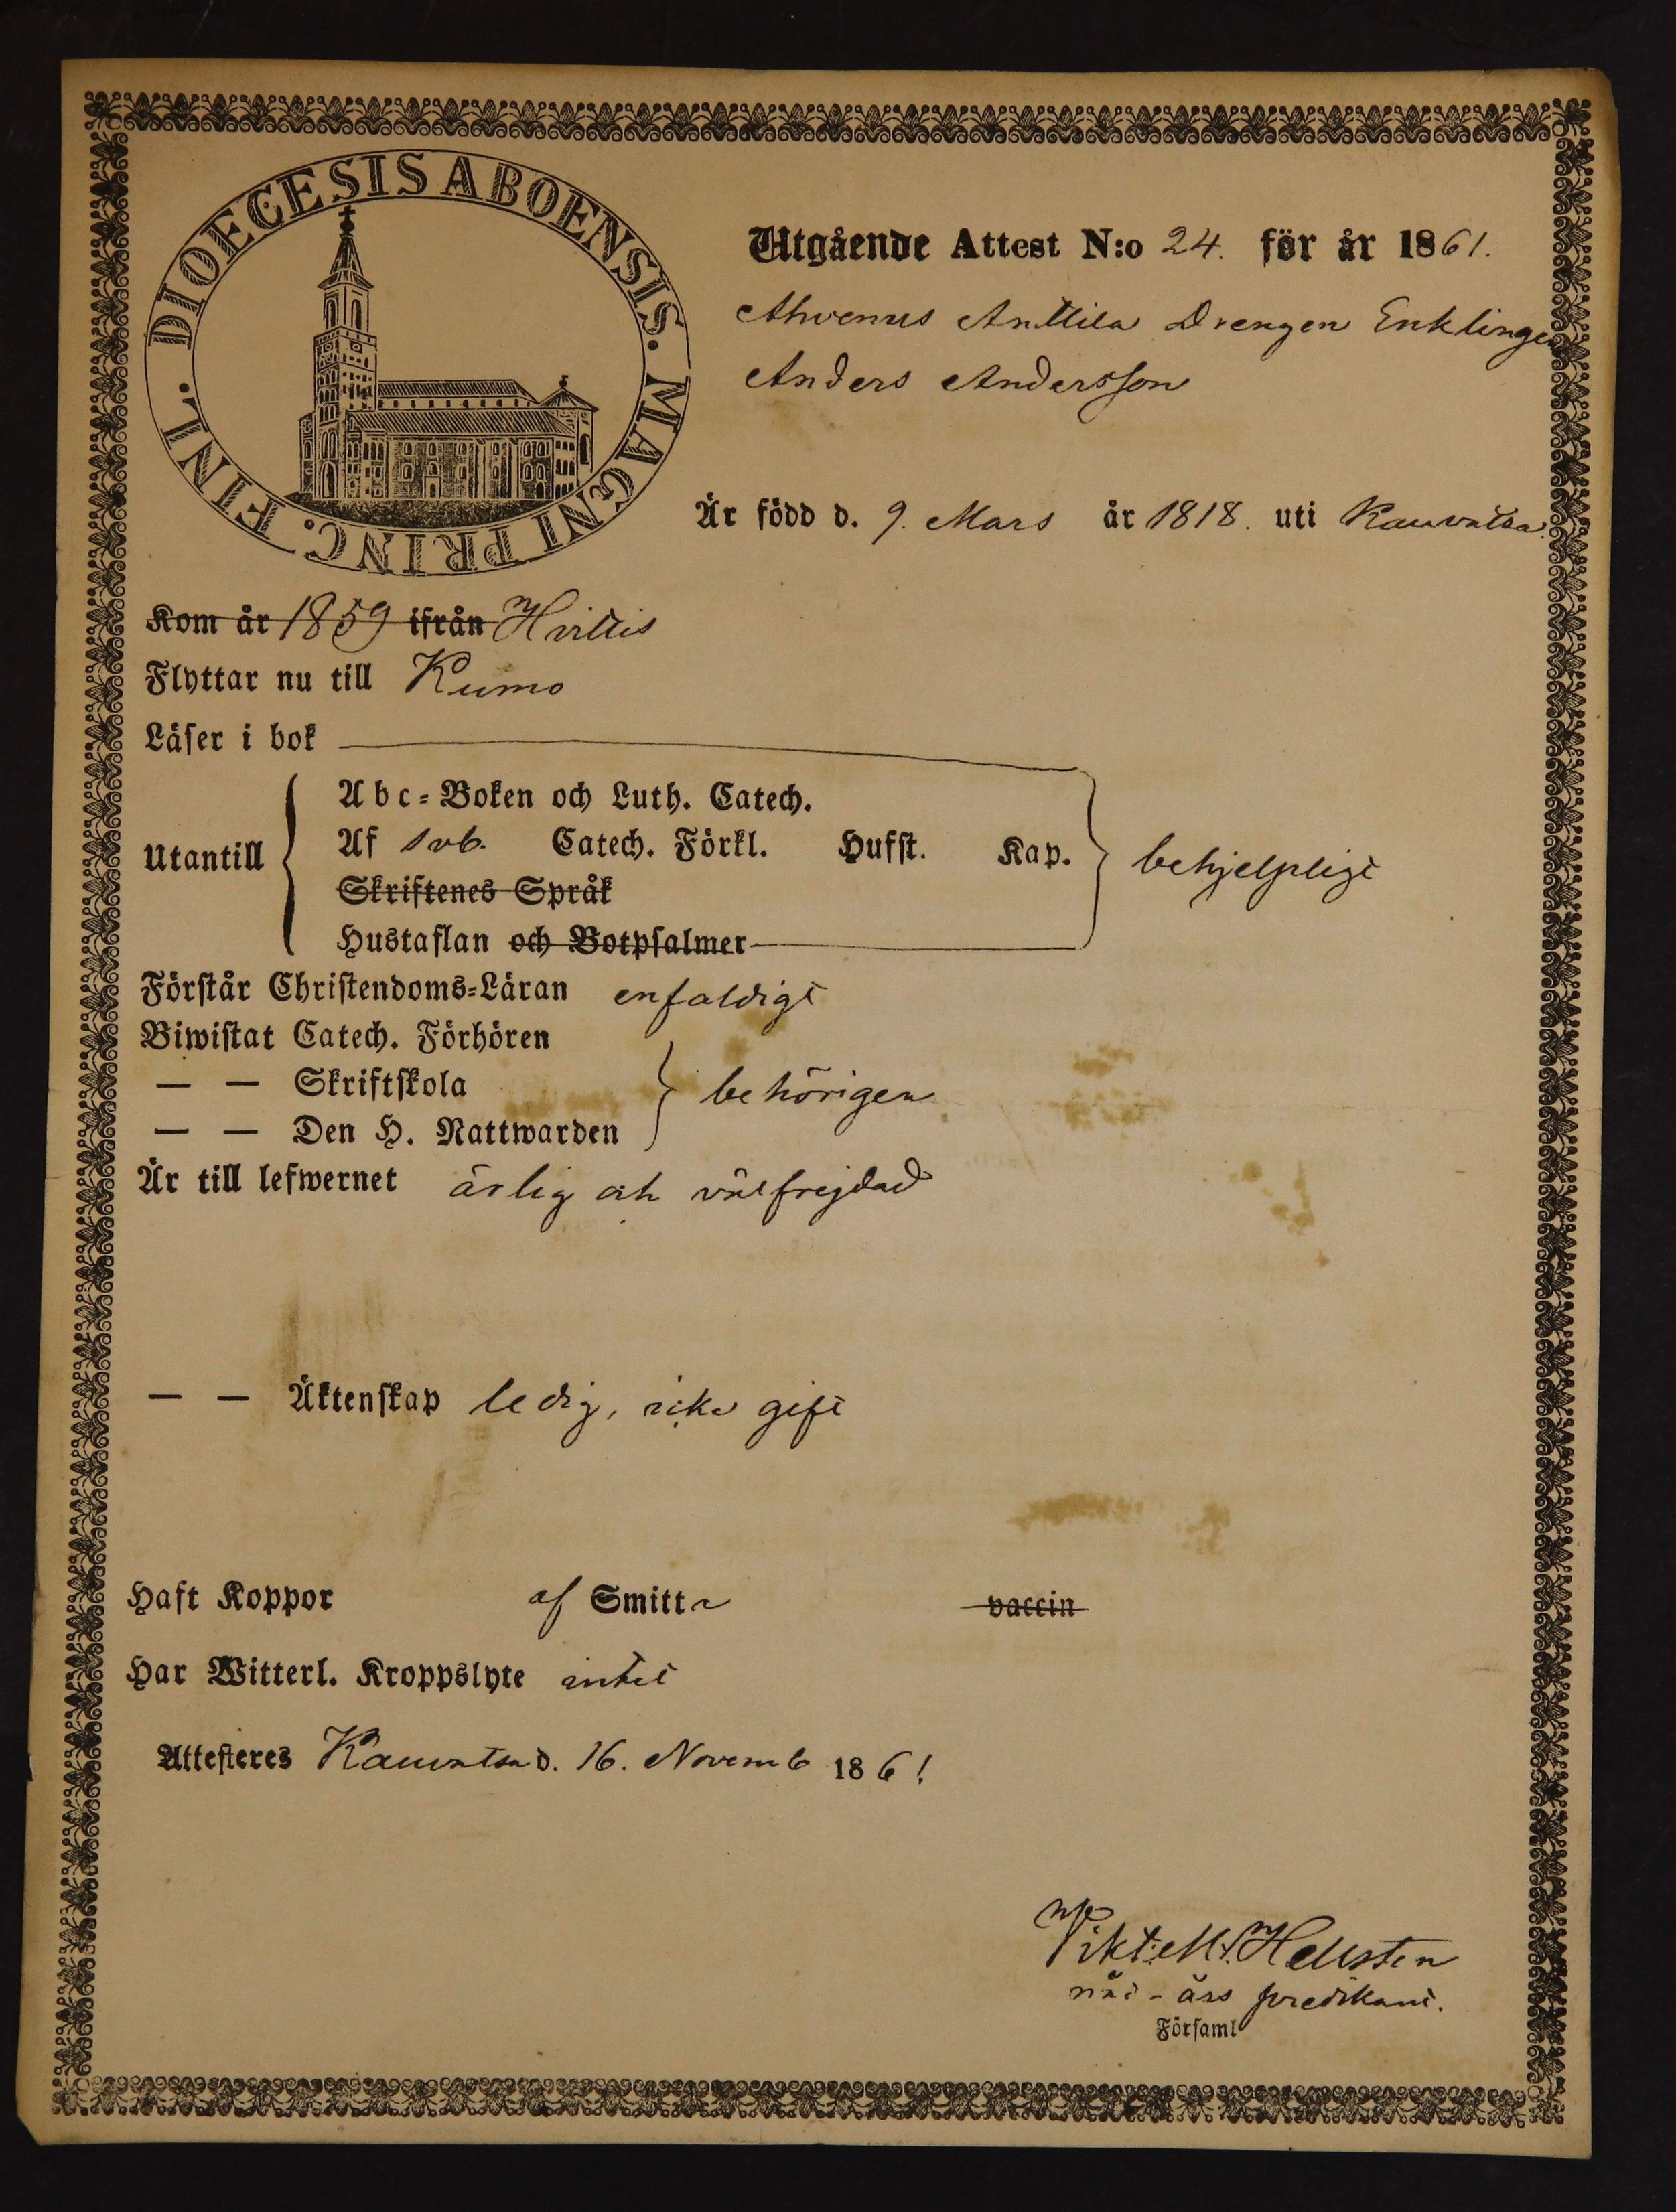 DIOECESIS ABOENSIS. MAGNI PRINC. FINL.
Utgående Attest N:o 24. för år 1861.
Ahvenus Anttila Drengen Enklingen
Anders Andersson
Är född d. 9. Mars år 1818. uti Kauvatsa.
Kom år 1859 ifrån Hvittis
Flyttar nu till Kumo
Läser i bok
Abc-Boken och Luth. Catech.
Utantill Af svb. Catech. Förkl. Hufst. Kap. behjelpligt
Skriftenes Språk
Hustaflan och Botpsalmer
Förstår Christendoms-Läran enfaldigt
Biwistat Catech. Förhören
— — Skriftskola behörigen
— — Den H. Nattwarden
Är till lefwernet ärlig och välfrejdad
— — Äktenskap ledig, icke gift
Haft Koppor af Smitta vaccin
Har Witterl. Kroppslyte intet
Attesteres Kauvatsa d. 16. Novemb 1861
Vikt. M. Hellsten
nåd-års predikant.
Församl